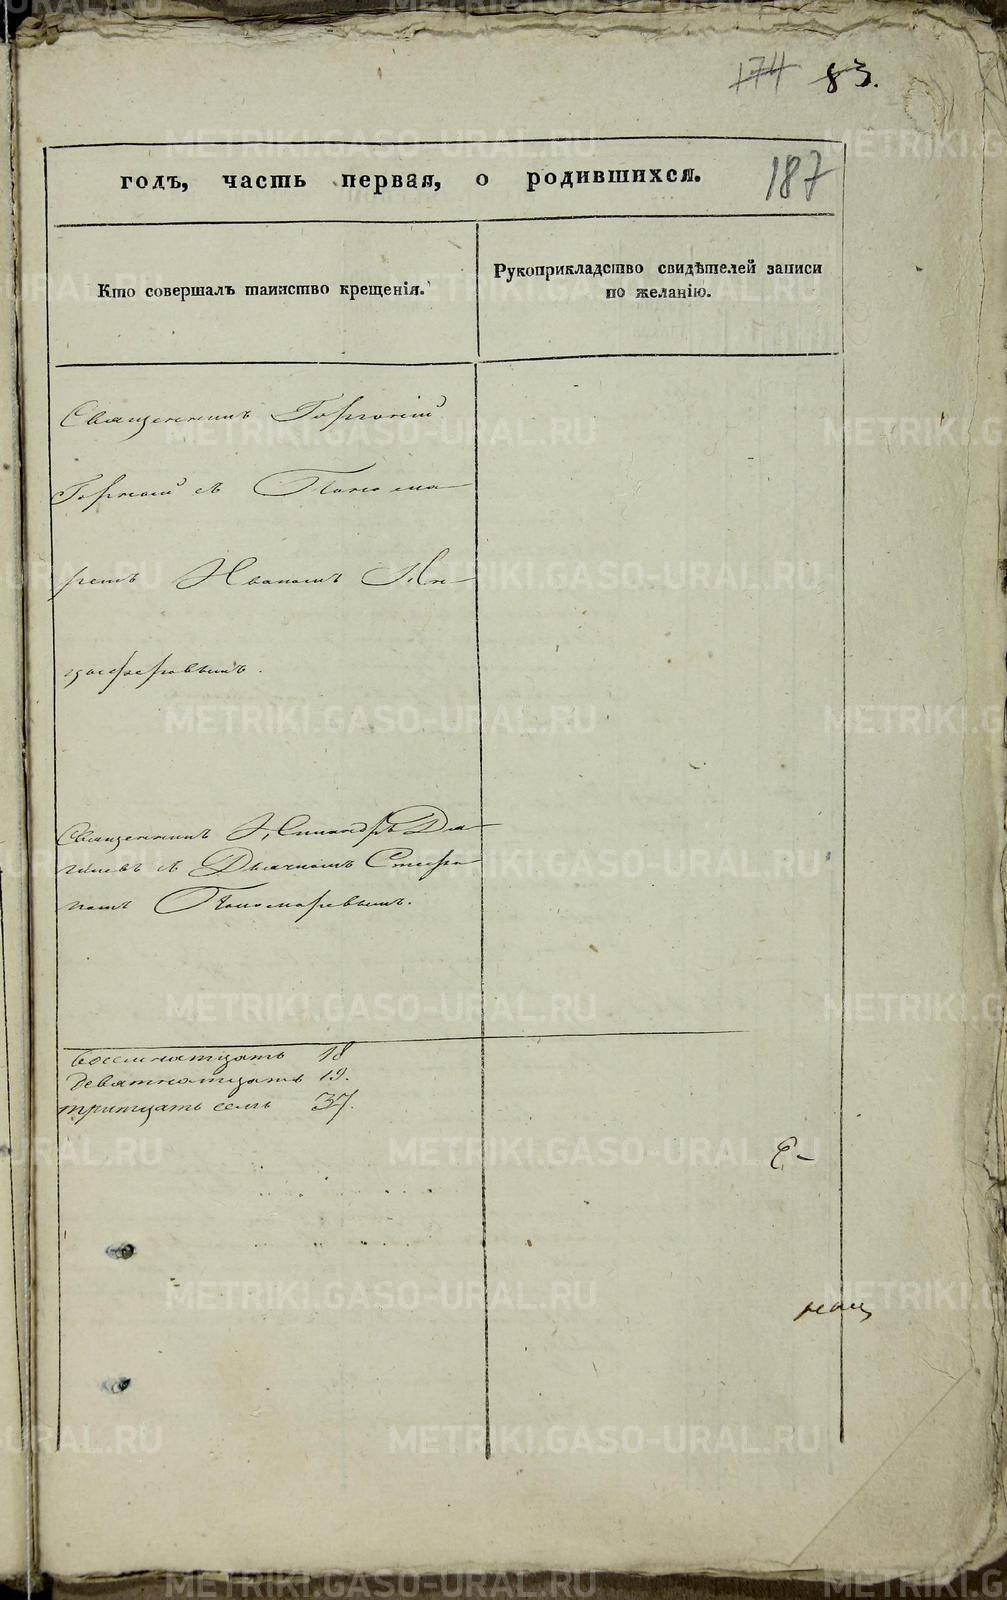 174 83.
187
годъ, часть первая, о родившихся.
Кто совершалъ таинство крещенія.
Рукоприкладство свидѣтелей записи
по желанію.
Священникъ Горгоній
Горный съ Понома
ремъ Иваномъ
Священникъ
съ Дьячкомъ Стефа
номъ Пономаревымъ.
восемнатцать 18
девятнатцать 19.
тритцать семь 37.
METRIKI.GASO-URAL.RU